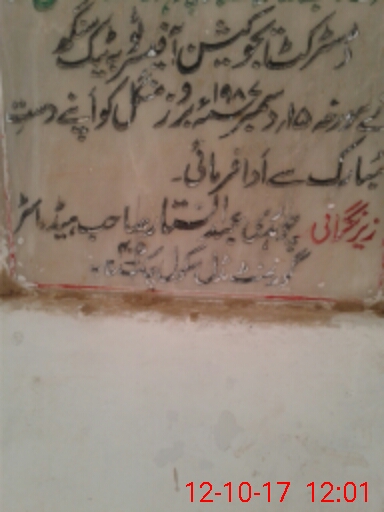 ڈسٹرکٹ ایجوکیشن آفیسر ٹوبہ ٹیک سنگھ
نے مورخہ ۱۵ دسمبر ۱۹۸۷ء بروز منگل کو اپنے دستِ
مبارک سے ادا فرمائی۔
زیرِنگرانی چوہدری عبدالستار صاحب ہیڈماسٹر
گورنمنٹ مڈل سکول چک
12-10-17 12:01